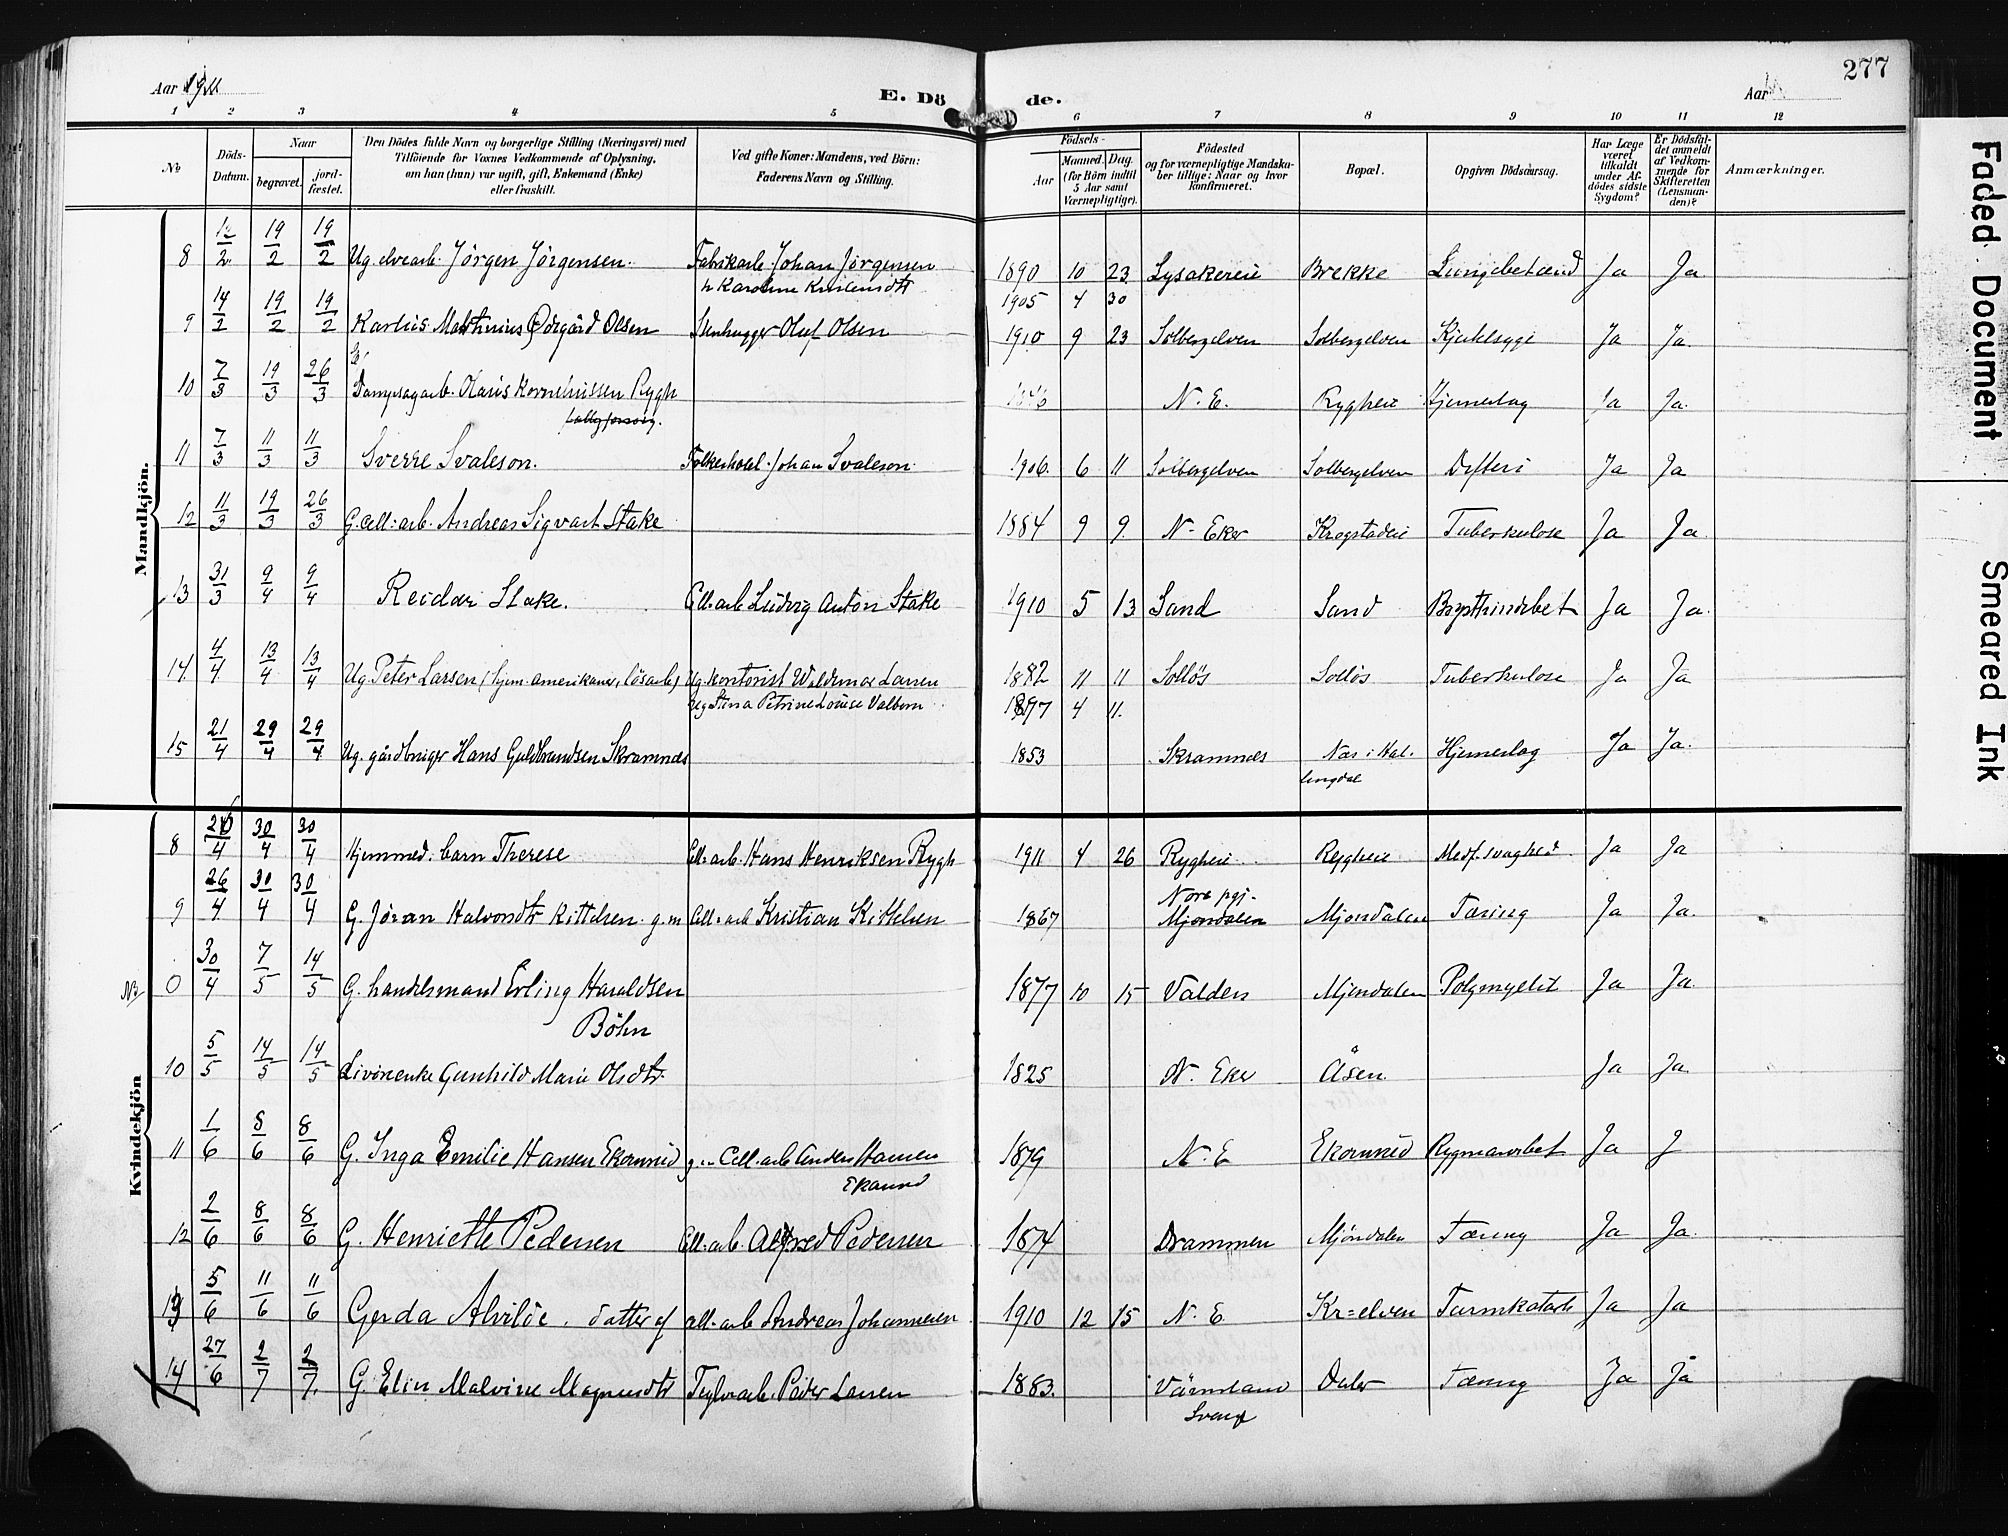 Aar 1911
E. Dö de.
Aar
277
1 2 3 4 5 6 7 8 9 10 11 12
No
Döds-Datum.
Naar
begravet.
jord-fæstet.
Den Dödes fulde Navn og borgerlige Stilling (Næringsvei) med
Tilföiende for Voxnes Vedkommende af Oplysning,
om han (hun) var ugift, gift, Enkemand (Enke)
eller fraskilt.
Ved gifte Koner: Mandens, ved Börn:
Faderens Navn og Stilling.
Födsels-
Aar
Maaned. Dag.
(for Börn indtil
5 Aar samt
Værnepligtige).
Födested
og for værnepligtige Mandska-
ber tillige: Naar og hvor
konfirmeret.
Bopæl.
Opgiven Dödsaarsag.
Har Læge
været
tilkaldt
under Af-
dödes sidste
Sygdom?
Er Dödsfal-
det anmeldt
af Vedkom-
mende for
Skifteretten
(Lensman-
den)?
Anmærkninger.
Mandkjön.
8 12/2 19/2 19/2 Ug. elvearb. Jörgen Jörgensen. Fabrikarb. Johan Jörgensen 1890 10 23 Lysakereie Brekke Lungebetænd Ja Ja
h Karoline
1905 4 30
9 14/2 19/2 19/2 Karlus Martinius Ödegård Olsen Stenhugger Oluf Olsen 1910 9 23 Solbergelven Solbergelven Kjertelsyge Ja Ja
10 7/3 19/3 26/3 Dampsagarb. Olaus Korneliussen Rygh N. E. Rygheie Hjerneslag Ja Ja.
11 7/3 11/3 11/3 Sverre Svaleson. Johan Svaleson. 1906. 6 11 Solbergelven Solbergelven Difteri Ja Ja
12 11/3 19/3 26/3 G. cell: arb. Andreas Sigvart Stake 1884 9 9. N- Eker Krogstadeie Tuberkulose Ja Ja.
13 31/3 9/4 9/4 Reidar Stake. Cell: arb Ludvig Anton Stake 1910 5 13 Sand Sand Brysthindebet Ja Ja.
14. 4/4 13/4 13/4 Ug Peter Larsen (hjem. amerikaner, lösarb.) Ug. kontorist Waldemar Larsen 1882 11 11 Solløs Solløs Tuberkulose Ja Ja
Ug Petrine Louise Valborn 1897 4 11.
15 21/4 29/4 29/4 Ug. gårdbruger Hans Guldbrandsen Skramnes 1853 Skramnes Nes i Hal-
lingdal Hjerneslag Ja Ja.
Kvindekjön
8 26/4 30/4 30/4 Hjemmed. barn Therese Cell: arb. Hans Henriksen Rygh 1911 4 26 Rygheie Rygheie Medf. svaghed Ja Ja
9 26/4 30/4 30/4 G. Jöran Halvorsdtr Kittelsen. g. m Cell: arb Kristian Kittelsen 1867 Nore pgj. Mjondalen Mjondalen Tæring Ja Ja.
NB 0 30/4 7/5 14/5 G. handelsmand Erling Haraldsen 1877 10 15 Valders Mjondalen Polymyelit Ja Ja.
Böhn
10 5/5 14/5 14/5 Livörenke Gunhild Marie Olsdtr. 1825 N. Eker Åsen Ja Ja.
11 1/6 8/6 8/6 G. Inga Emilie Hansen Ekornrud g.m Cell. arb Anders Hansen 1879 N. E Ekornrud Rygmarvsbet Ja J
12 2/6 8/6 8/6 G. Henriette Pedersen Cell: arb. Alfred Pedersen 1874 Drammen Mjöndalen Tæring Ja Ja.
13 5/6 11/6 11/6 Gerda Alvilde. datter af cell: arb Andreas Johannesen 1910 12 15 N. E. Kr=elven Tarmkatarh Ja Ja
14 27/6 2/7 2/7. G. Elin Malvine Magnusdtr Teglv.arb. Peder Larsen 1883. Värmland Daler Tæring Ja Ja
Sverige
Faded Document
Smeared Ink